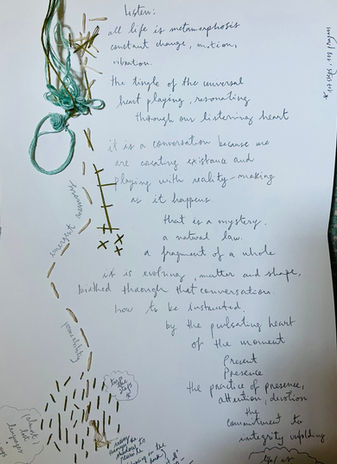 Listen:
all life is metamorphosis
constant change, motion,
vibration.
the tingle of the universal
heart playing, resonating
through our listening heart
it is a conversation because we
are creating existance and
playing with reality-making
as it happens
that is a mystery.
a natural law.
a fragment of a whole
it is evolving, matter and shape,
birthed through that conversation.
how to be instructed.
by the pulsating heart
of the moment
Present
Presence
the practice of presence,
attention, devotion
the
commitment to
integrity unfolding
possibility